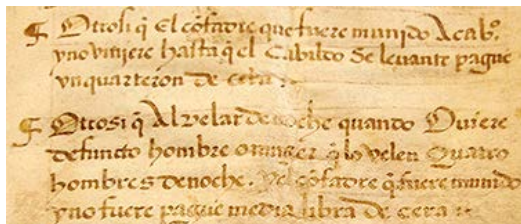 ¶ Ottosi q̃ El cõfadre que fuere munido Acab.º
yno viniere hasta q̃ el Cabildo Se levante pague
vnquarteron de cera
¶ Ottosi q̃ Alvelar de noche quando Oviere
defuncto hombre omuger q̃ lo velen Quatro
hombres denoche. yel cõfadre q̃ fuere munido
yno fuere pague media libra de cera